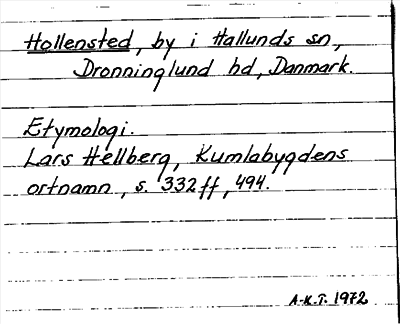 Hollensted, by i Hallunds sn,
Dronninglund hd, Danmark.
Etymologi.
Lars Hellberg, Kumlabygdens
ortnamn, s. 332ff, 494.
A-K.T. 1972